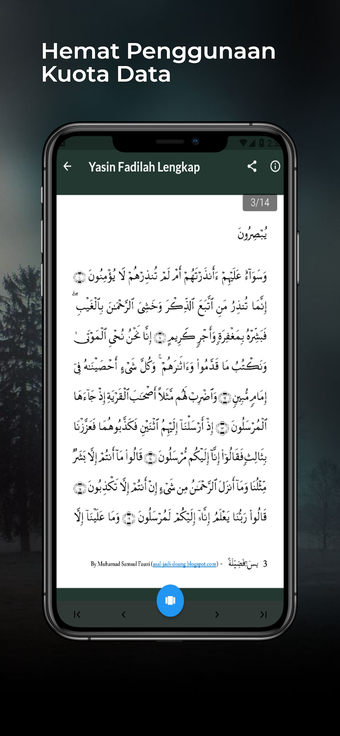 Hemat Penggunaan
Kuota Data
Yasin Fadilah Lengkap
3/14
يُبْصِرُونَ
وَسَوَآءٌ عَلَيْهِمْ ءَأَنذَرْتَهُمْ أَمْ لَمْ تُنذِرْهُمْ لَا يُؤْمِنُونَ
إِنَّمَا تُنذِرُ مَنِ ٱتَّبَعَ ٱلذِّكْرَ وَخَشِىَ ٱلرَّحْمَٰنَ بِٱلْغَيْبِ ۖ
فَبَشِّرْهُ بِمَغْفِرَةٍ وَأَجْرٍ كَرِيمٍ إِنَّا نَحْنُ نُحْىِ ٱلْمَوْتَىٰ
وَنَكْتُبُ مَا قَدَّمُوا۟ وَءَاثَٰرَهُمْ ۚ وَكُلَّ شَىْءٍ أَحْصَيْنَٰهُ فِىٓ
إِمَامٍ مُّبِينٍ وَٱضْرِبْ لَهُم مَّثَلًا أَصْحَٰبَ ٱلْقَرْيَةِ إِذْ جَآءَهَا
ٱلْمُرْسَلُونَ إِذْ أَرْسَلْنَآ إِلَيْهِمُ ٱثْنَيْنِ فَكَذَّبُوهُمَا فَعَزَّزْنَا
بِثَالِثٍ فَقَالُوٓا۟ إِنَّآ إِلَيْكُم مُّرْسَلُونَ قَالُوا۟ مَآ أَنتُمْ إِلَّا بَشَرٌ
مِّثْلُنَا وَمَآ أَنزَلَ ٱلرَّحْمَٰنُ مِن شَىْءٍ إِنْ أَنتُمْ إِلَّا تَكْذِبُونَ
قَالُوا۟ رَبُّنَا يَعْلَمُ إِنَّآ إِلَيْكُمْ لَمُرْسَلُونَ وَمَا عَلَيْنَآ إِلَّا
By Muhamad Samsul Fauzi (asal-jadi-doang.blogspot.com) - يسٓ فَضِيْلَةْ 3